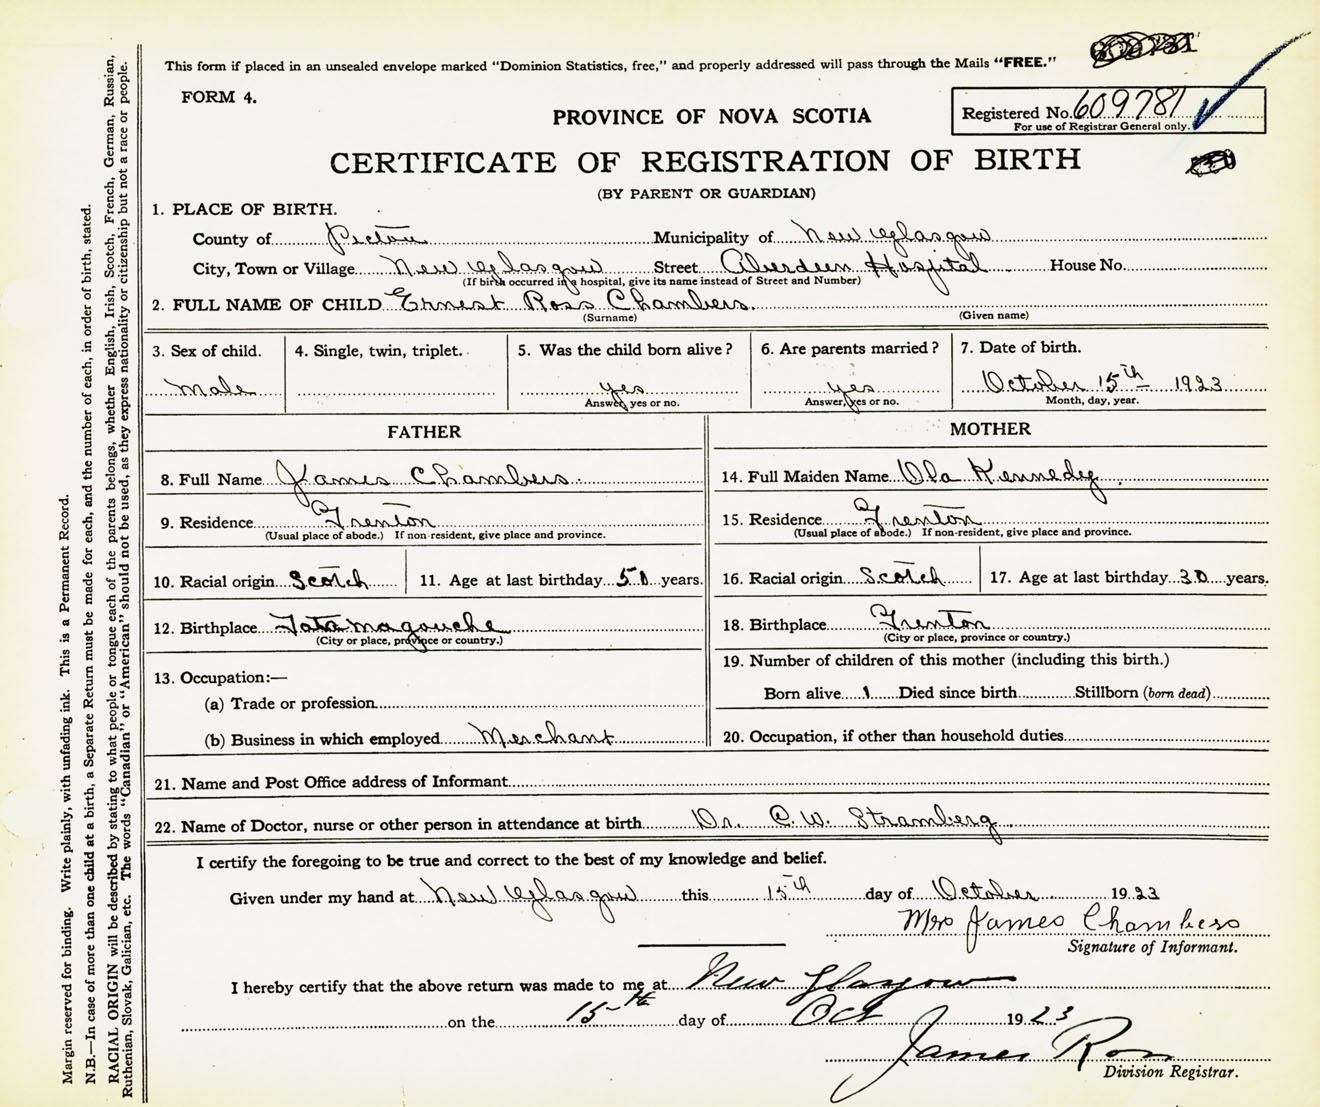 This form if placed in an unsealed envelope marked "Dominion Statistics, free," and properly addressed will pass through the Mails "FREE."
FORM 4.
PROVINCE OF NOVA SCOTIA
Registered No. 609781
For use of Registrar General only.
CERTIFICATE OF REGISTRATION OF BIRTH
(BY PARENT OR GUARDIAN)
1. PLACE OF BIRTH.
County of Pictou Municipality of New Glasgow
City, Town or Village New Glasgow Street Aberdeen Hospital House No.
(If birth occurred in a hospital, give its name instead of Street and Number)
2. FULL NAME OF CHILD Ernest Ross Chambers.
(Surname) (Given name)
3. Sex of child. 4. Single, twin, triplet. 5. Was the child born alive? 6. Are parents married? 7. Date of birth.
Male yes yes October 15th 1923
Answer, yes or no. Answer, yes or no. Month, day, year.
FATHER MOTHER
8. Full Name James Chambers. 14. Full Maiden Name Ola Kennedy.
9. Residence Trenton 15. Residence Trenton
(Usual place of abode.) If non-resident, give place and province. (Usual place of abode.) If non-resident, give place and province.
10. Racial origin Scotch 11. Age at last birthday 50 years. 16. Racial origin Scotch 17. Age at last birthday 30 years.
12. Birthplace Tatamagouche 18. Birthplace Trenton
(City or place, province or country.) (City or place, province or country.)
13. Occupation:— 19. Number of children of this mother (including this birth.)
(a) Trade or profession Born alive 1 Died since birth Stillborn (born dead)
(b) Business in which employed Merchant 20. Occupation, if other than household duties
21. Name and Post Office address of Informant
22. Name of Doctor, nurse or other person in attendance at birth Dr. C. W. Stramberg
I certify the foregoing to be true and correct to the best of my knowledge and belief.
Given under my hand at New Glasgow this 15th day of October 1923
Mrs James Chambers
Signature of Informant.
I hereby certify that the above return was made to me at New Glasgow
on the 15th day of Oct 1923
James Ross
Division Registrar.
Margin reserved for binding. Write plainly, with unfading ink. This is a Permanent Record.
N.B.—In case of more than one child at a birth, a Separate Return must be made for each, and the number of each, in order of birth, stated.
RACIAL ORIGIN will be described by stating to what people or tongue each of the parents belongs, whether English, Irish, Scotch, French, German, Russian,
Ruthenian, Slovak, Galician, etc. The words "Canadian" or "American" should not be used, as they express nationality or citizenship but not a race or people.